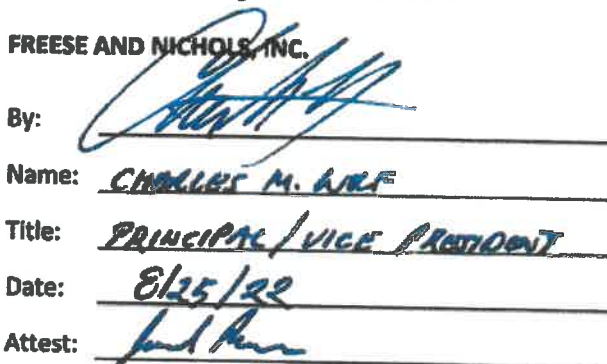 FREESE AND NICHOLS, INC.
By:
Name: CHARLES M. WOLF
Title: PRINCIPAL / VICE PRESIDENT
Date: 8/25/22
Attest: